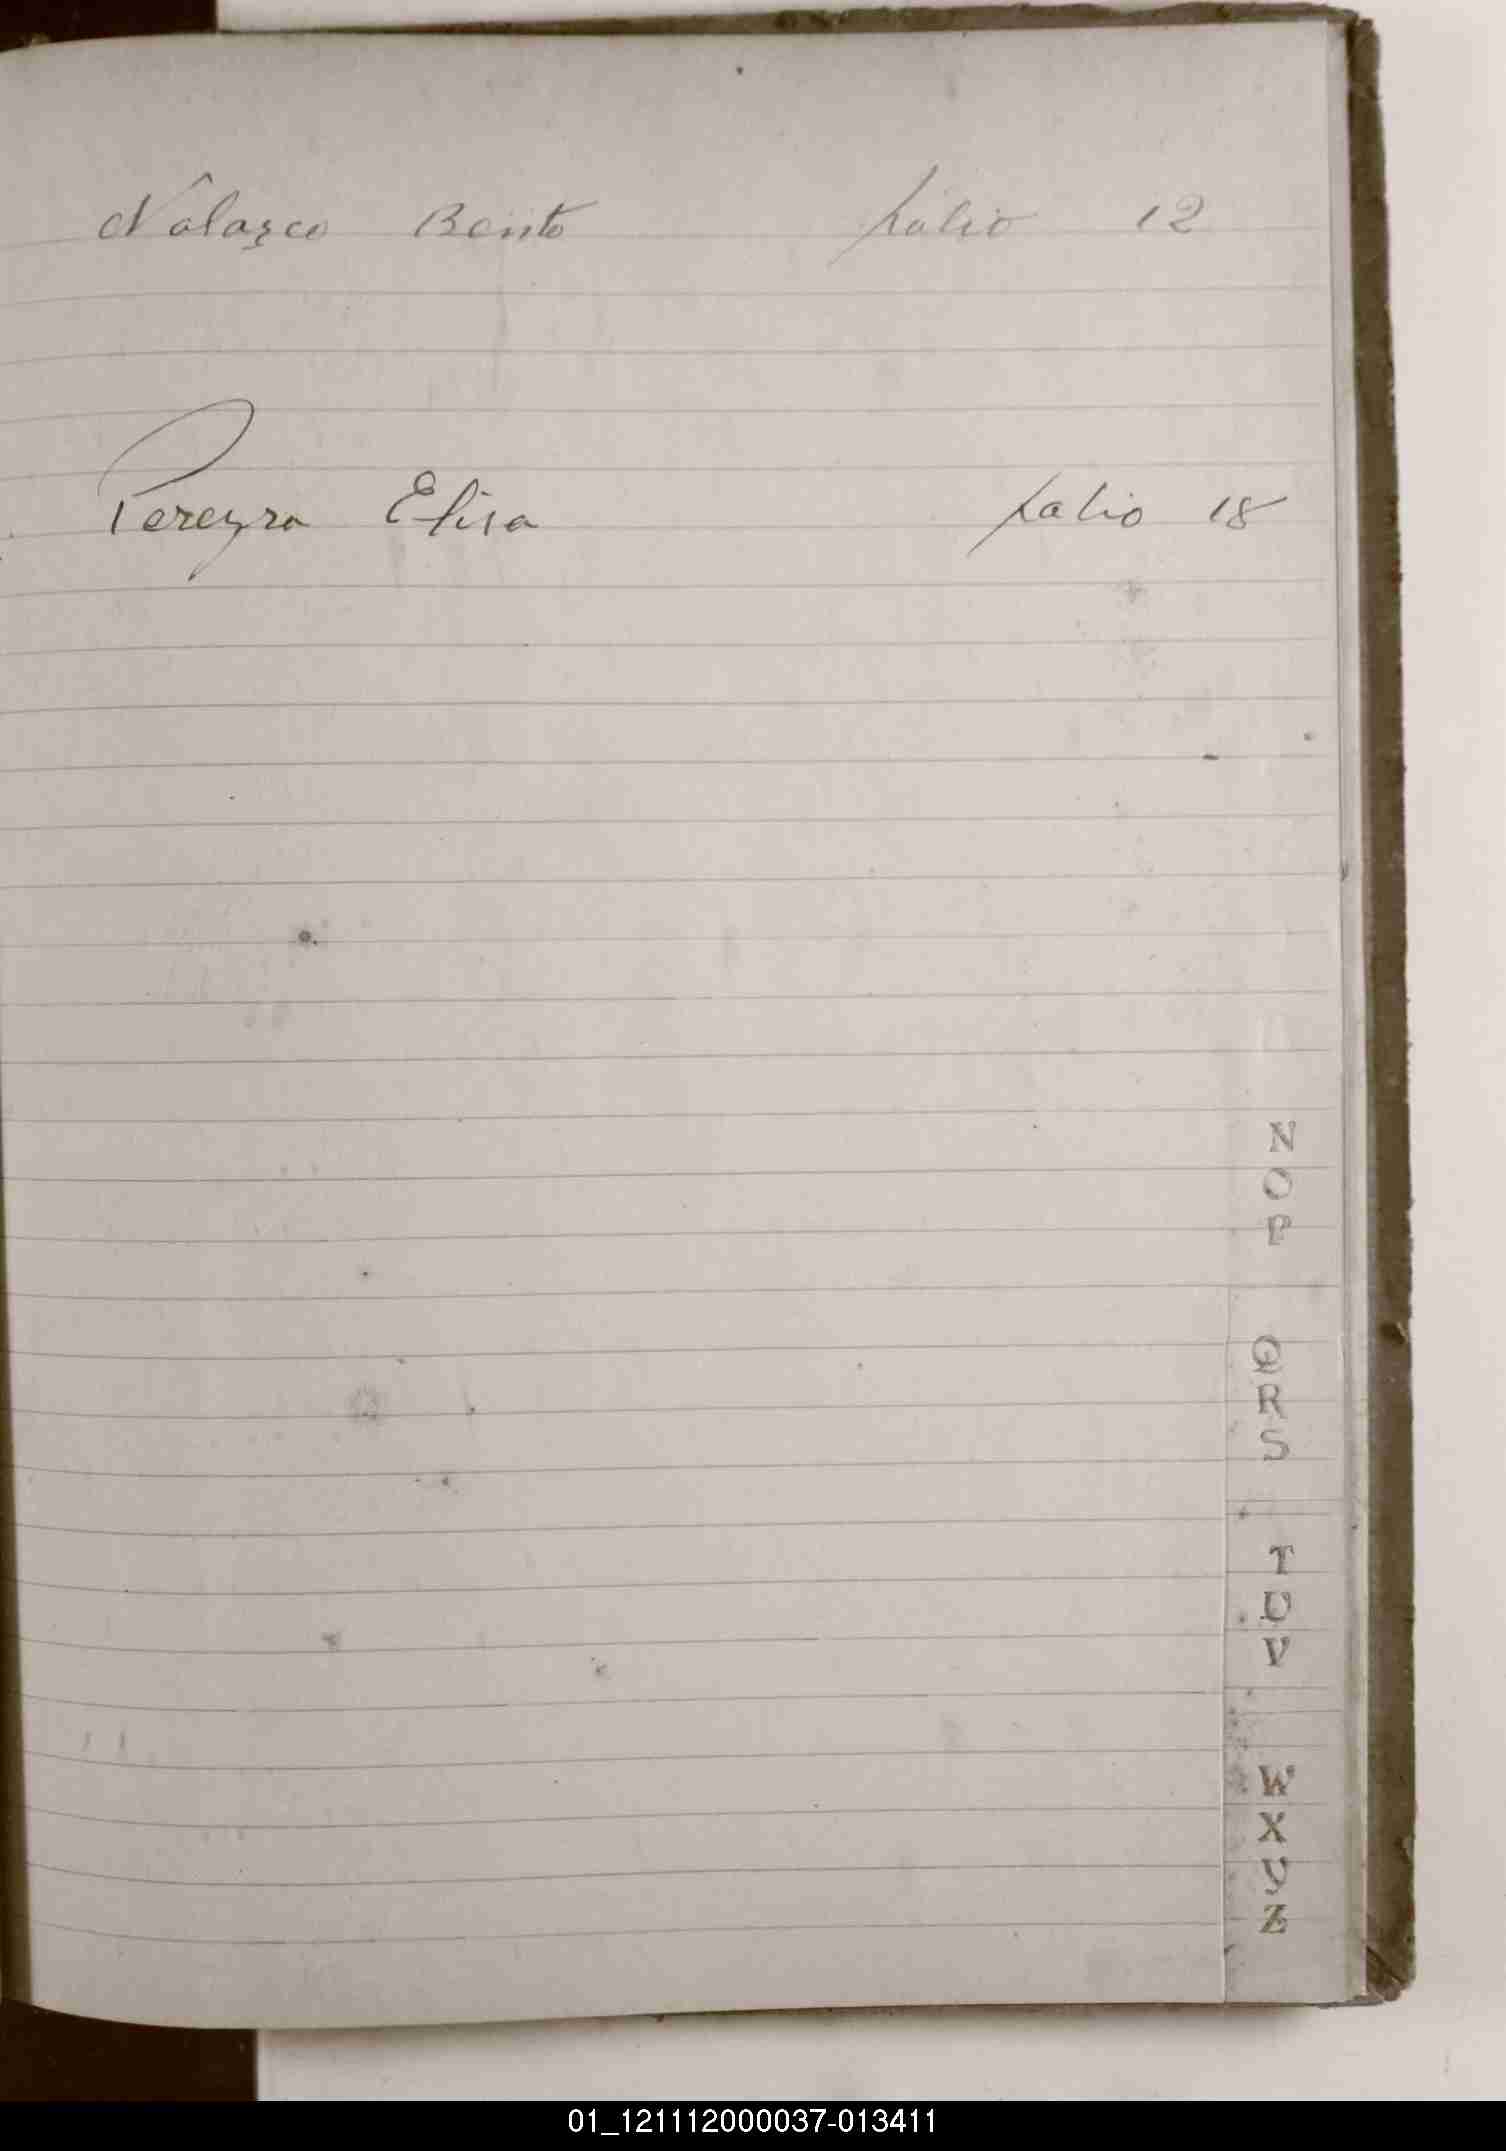 Nolazco Benito folio 12
Pereyra Elisa folio 18
N
O
P
Q
R
S
T
U
V
W
X
Y
Z
01_121112000037-013411